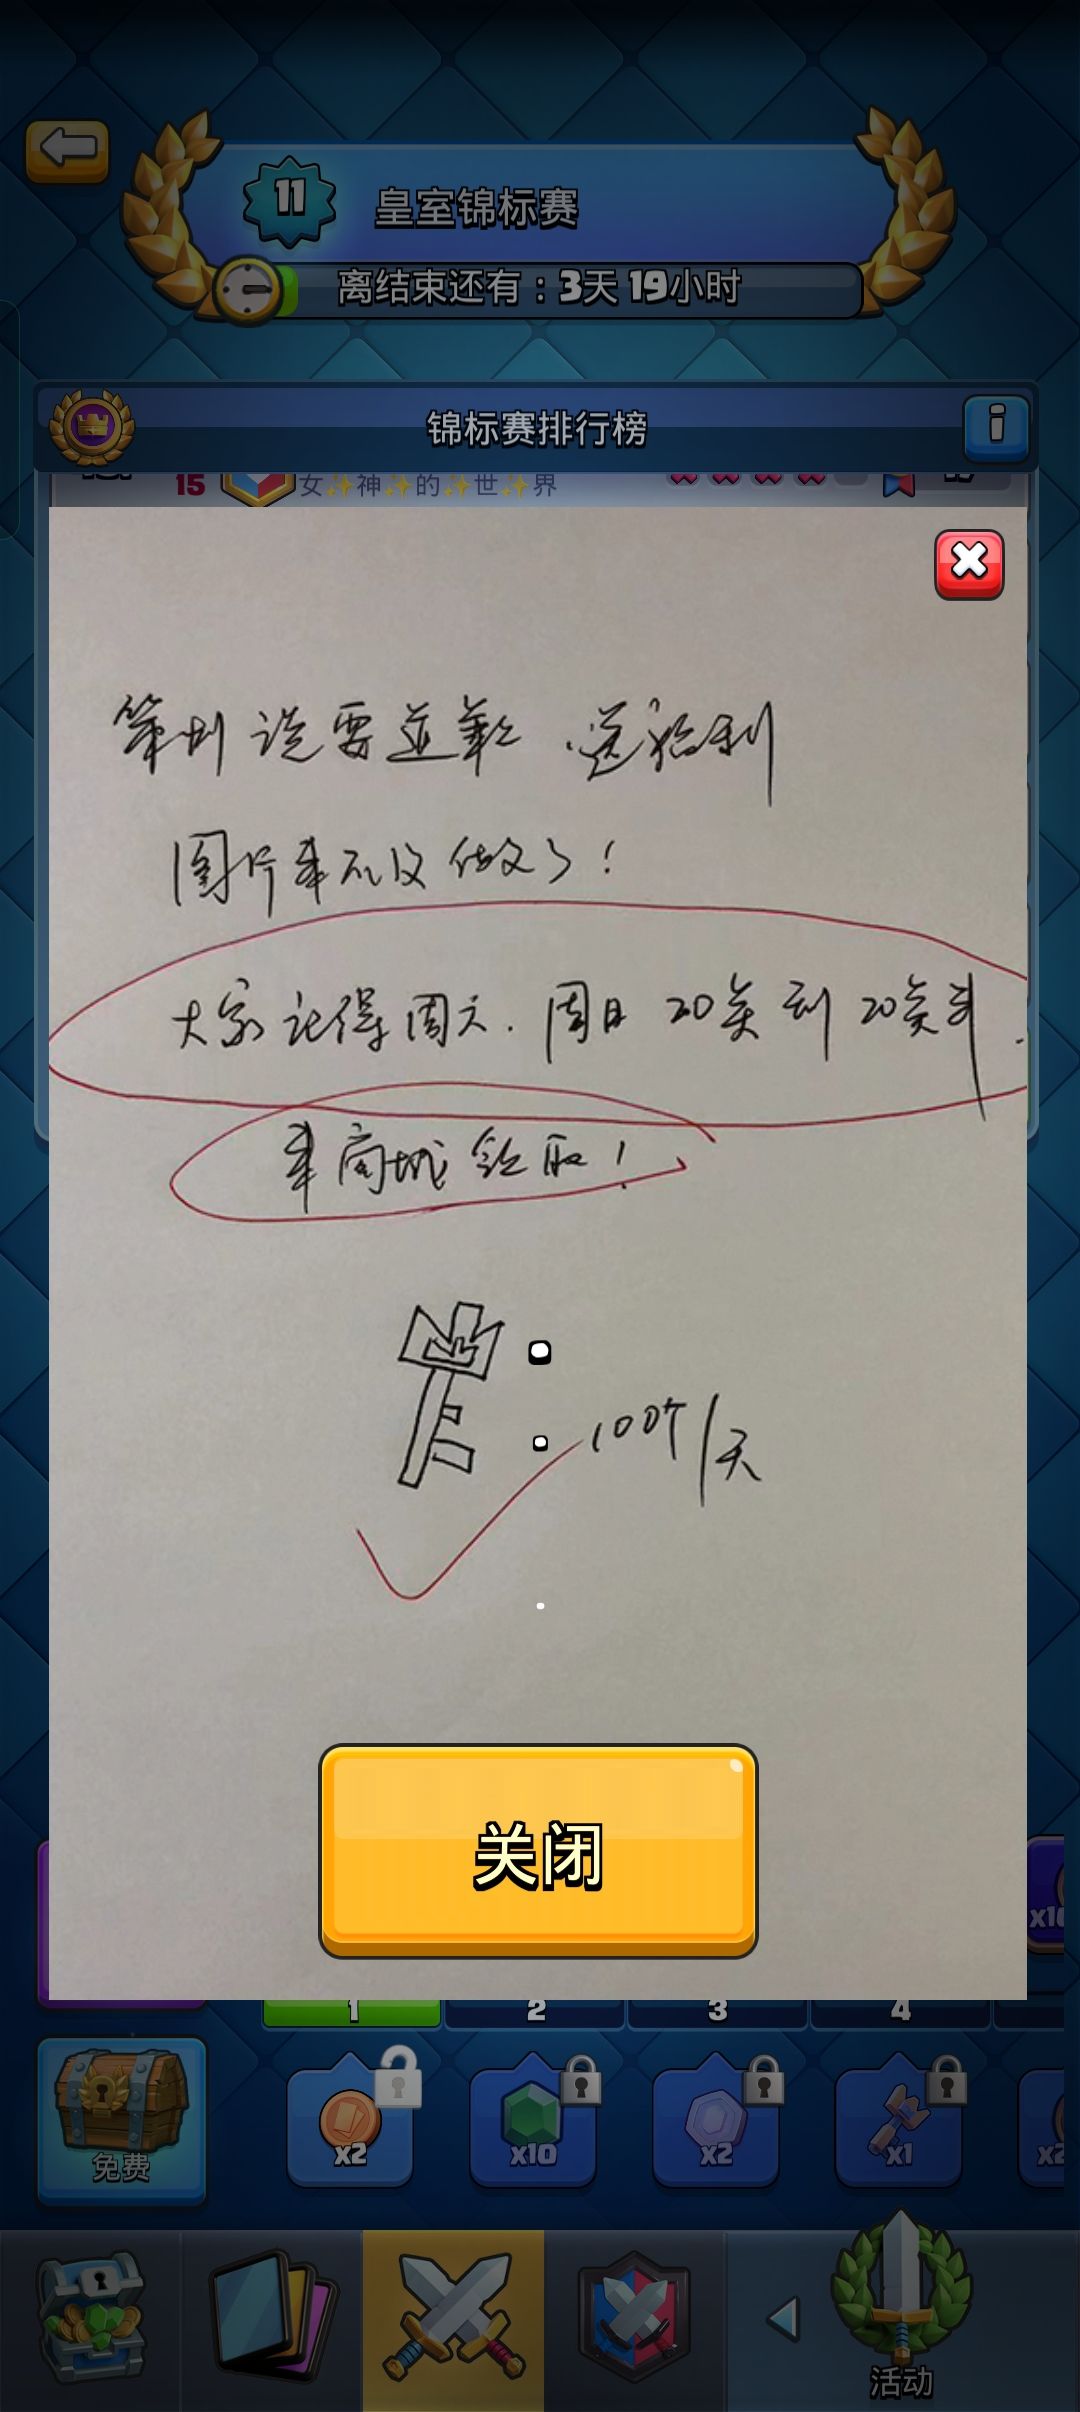 11
皇室锦标赛
离结束还有：3天 19小时
锦标赛排行榜
i
15
女✨神✨的✨世✨界
策划说要道歉 送福利
图片来不及做了！
大家记得周六、周日 20关到20关半
来商城领取！
100个/天
关闭
1 2 3 4
免费
x2
x10
x2
x1
活动